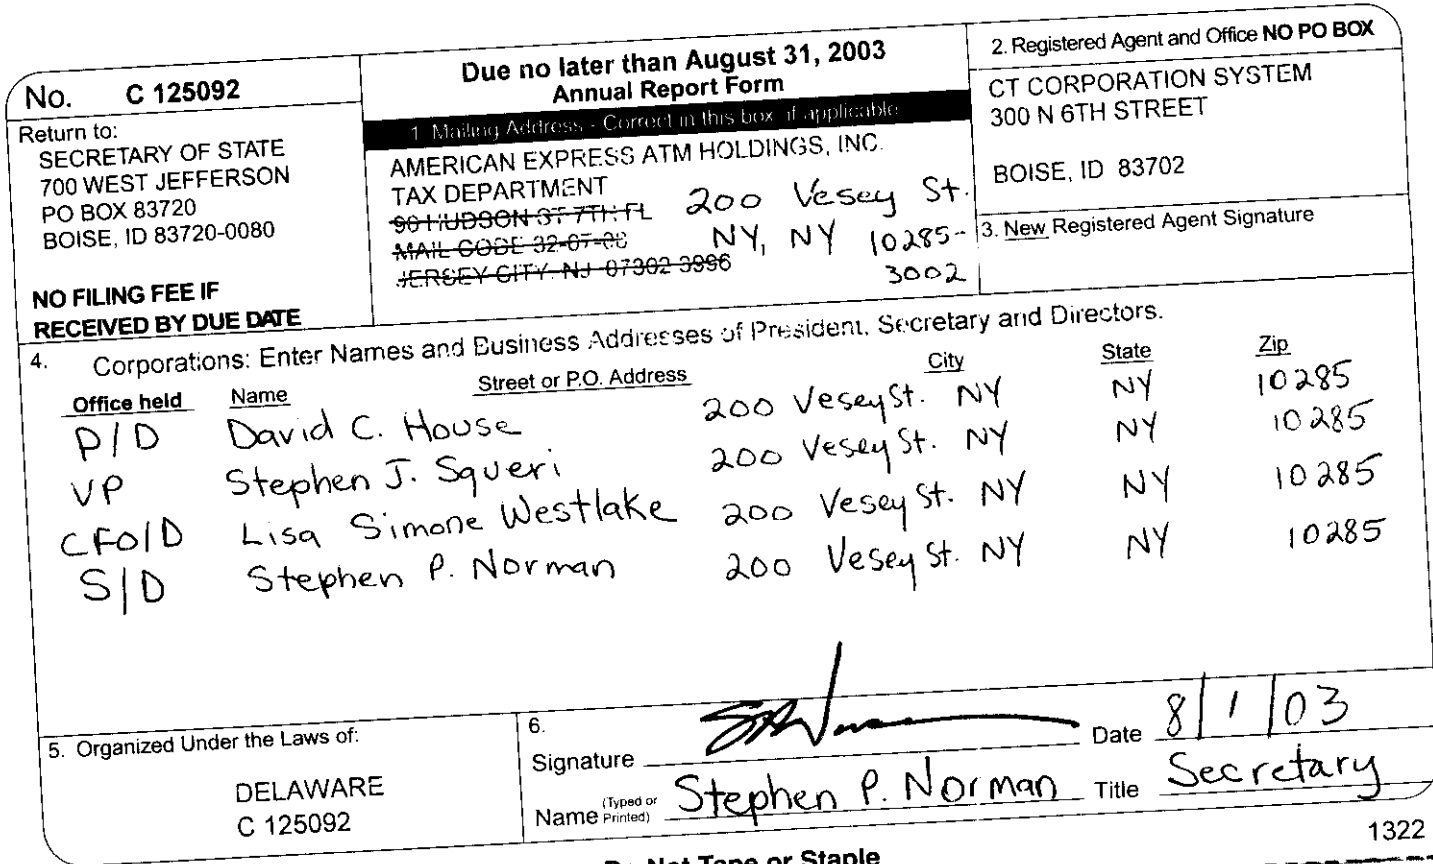 No. C 125092
Return to:
SECRETARY OF STATE
700 WEST JEFFERSON
PO BOX 83720
BOISE, ID 83720-0080
NO FILING FEE IF
RECEIVED BY DUE DATE
Due no later than August 31, 2003
Annual Report Form
1. Mailing Address - Correct in this box if applicable
AMERICAN EXPRESS ATM HOLDINGS, INC.
TAX DEPARTMENT
90 HUDSON ST 7TH FL 200 Vesey St.
MAIL CODE 32-07-08 NY, NY 10285-
JERSEY CITY, NJ 07302 3996 3002
2. Registered Agent and Office NO PO BOX
CT CORPORATION SYSTEM
300 N 6TH STREET
BOISE, ID 83702
3. New Registered Agent Signature
4. Corporations: Enter Names and Business Addresses of President, Secretary and Directors.
Office held Name Street or P.O. Address City State Zip
P/D David C. House 200 Vesey St. NY NY 10285
VP Stephen J. Squeri 200 Vesey St. NY NY 10285
CFO/D Lisa Simone Westlake 200 Vesey St. NY NY 10285
S/D Stephen P. Norman 200 Vesey St. NY NY 10285
5. Organized Under the Laws of:
DELAWARE
C 125092
6.
Signature Date 8/1/03
Name (Typed or Printed) Stephen P. Norman Title Secretary
1322
Do Not Tape or Staple